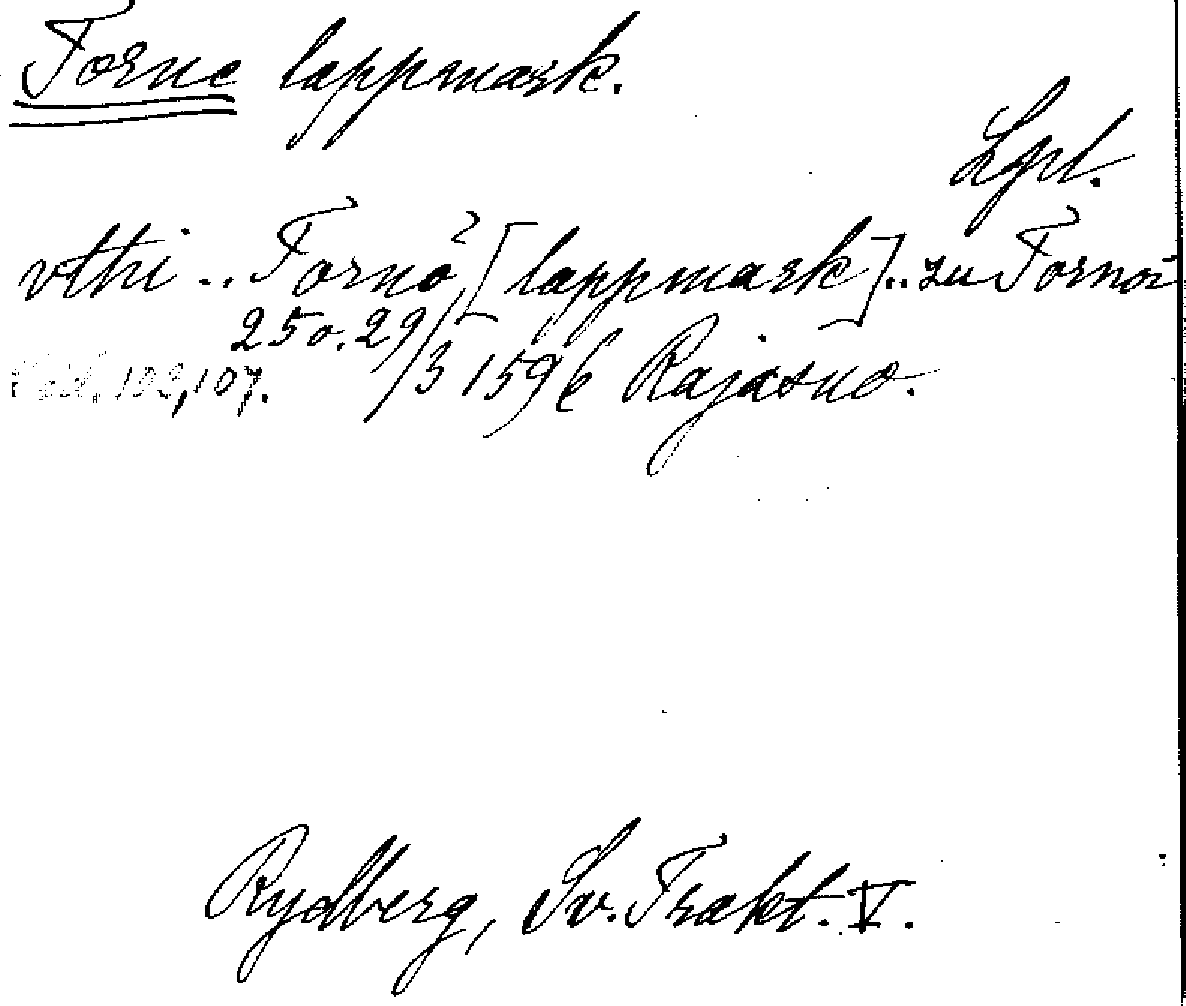 Torne lappmark.
Lpl.
vthi .. Tornö, [lappmark] .. zu Tornöi
25 o. 29/3 1596 Rajasuo.
102, 107.
Rydberg, Sv. Trakt. V.